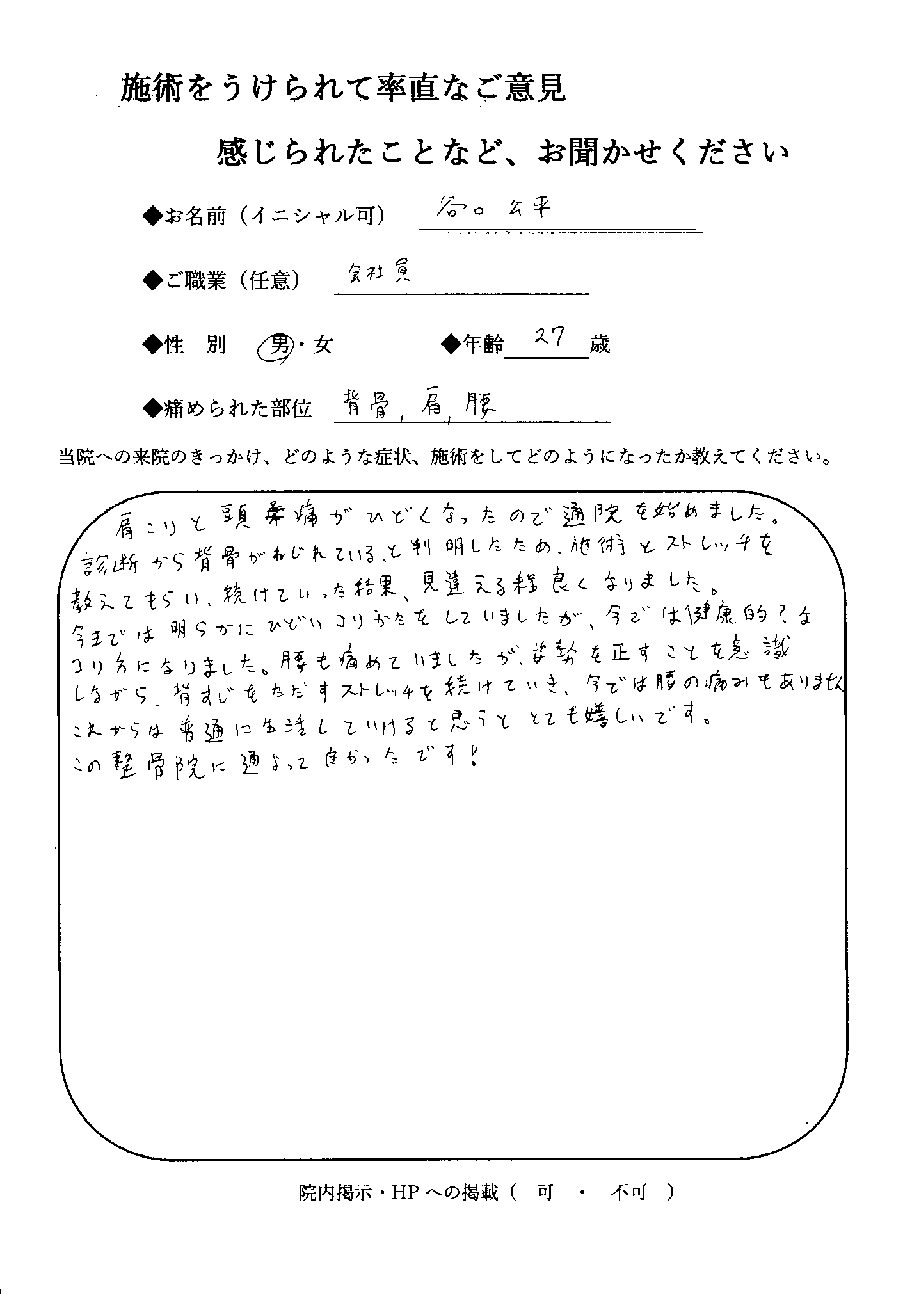 施術をうけられて率直なご意見
感じられたことなど、お聞かせください
◆お名前（イニシャル可） 谷口 公平
◆ご職業（任意） 会社員
◆性　別　男・女　◆年齢 27 歳
◆痛められた部位 背骨, 肩, 腰
当院への来院のきっかけ、どのような症状、施術をしてどのようになったか教えてください。
肩こりと頭痛がひどくなったので通院を始めました。
診断から背骨がねじれている、と判明したため、施術とストレッチを
教えてもらい、続けていった結果、見違える程良くなりました。
今までは明らかにひどいコリかたをしていましたが、今では健康的な
コリ方になりました。腰も痛めていましたが、姿勢を正すことを意識
しながら、背すじをただすストレッチを続けていき、今では腰の痛みもありません
これからは普通に生活していけると思うととても嬉しいです。
この整骨院に通よって良かったです!
院内掲示・HPへの掲載（　可　・　不可　）